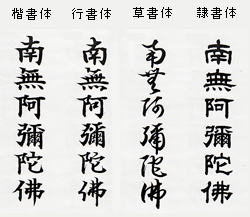 楷書体 行書体 草書体 隷書体
南無阿彌陀佛
南無阿彌陀佛
南無阿彌陀佛
南無阿彌陀佛